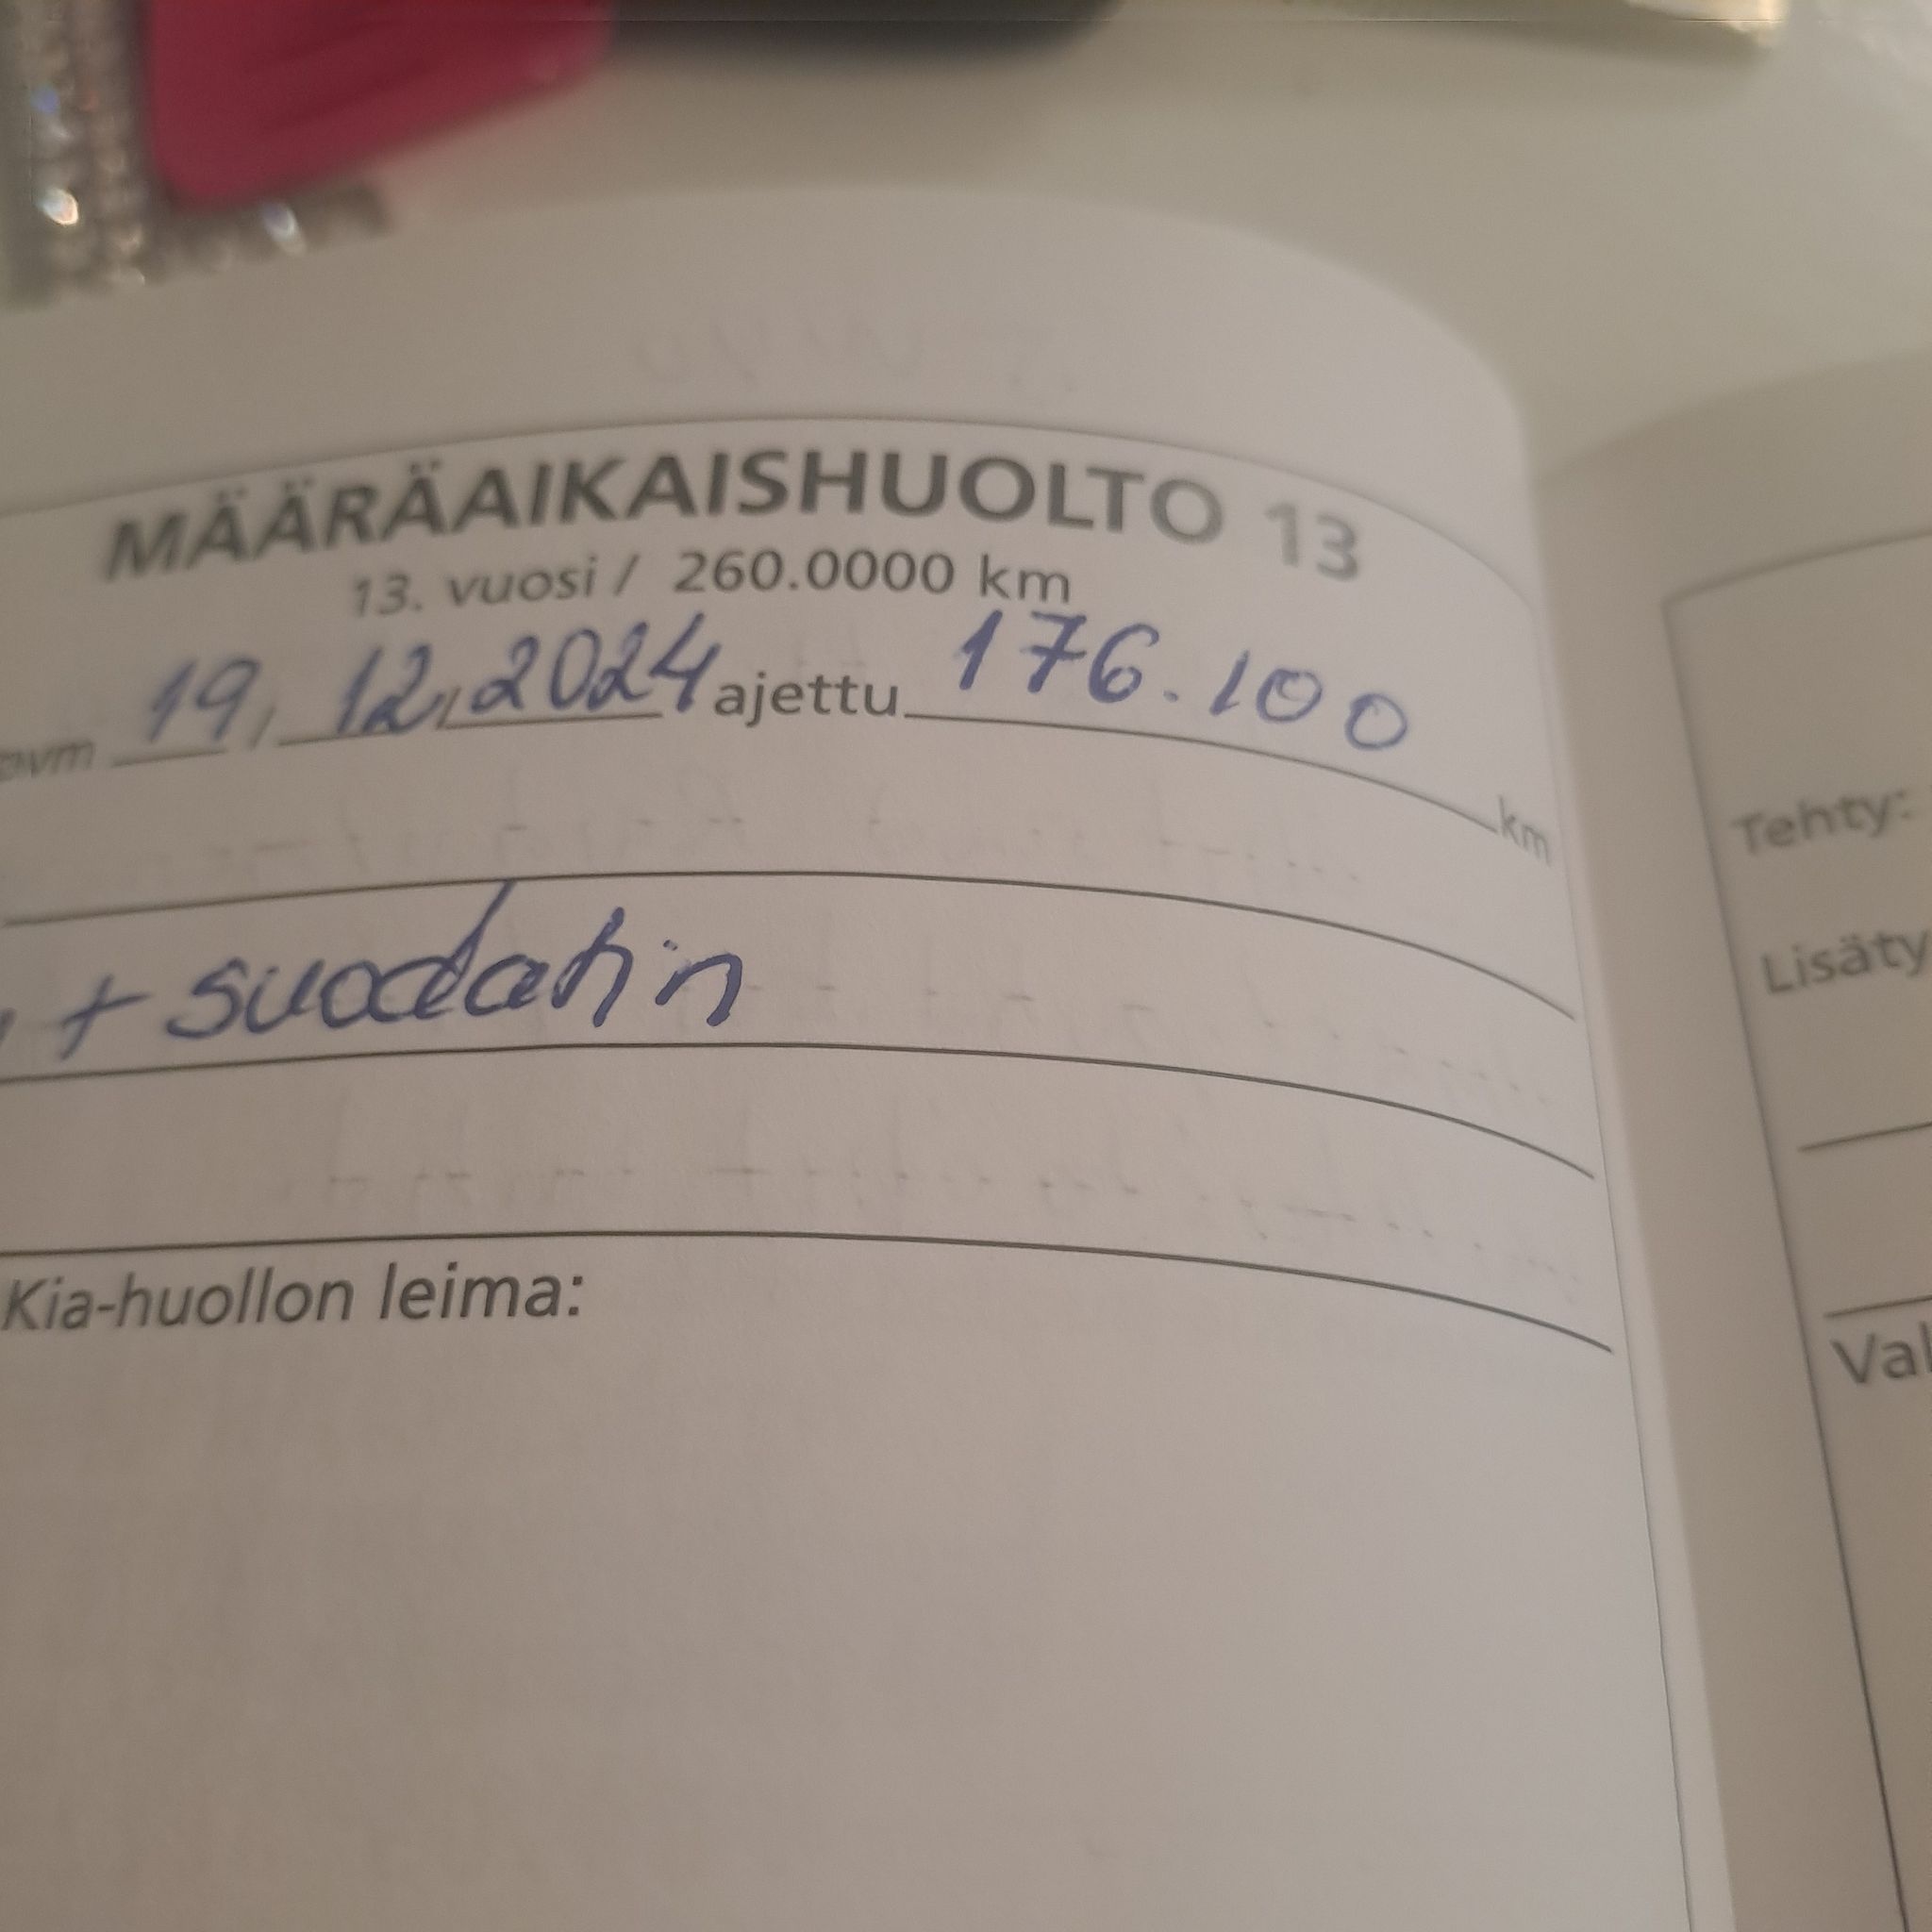 MÄÄRÄAIKAISHUOLTO 13
13. vuosi / 260.0000 km
pvm 19, 12, 2024 ajettu 176.100 km
+ suodatin
Kia-huollon leima:
Tehty:
Lisäty
Val